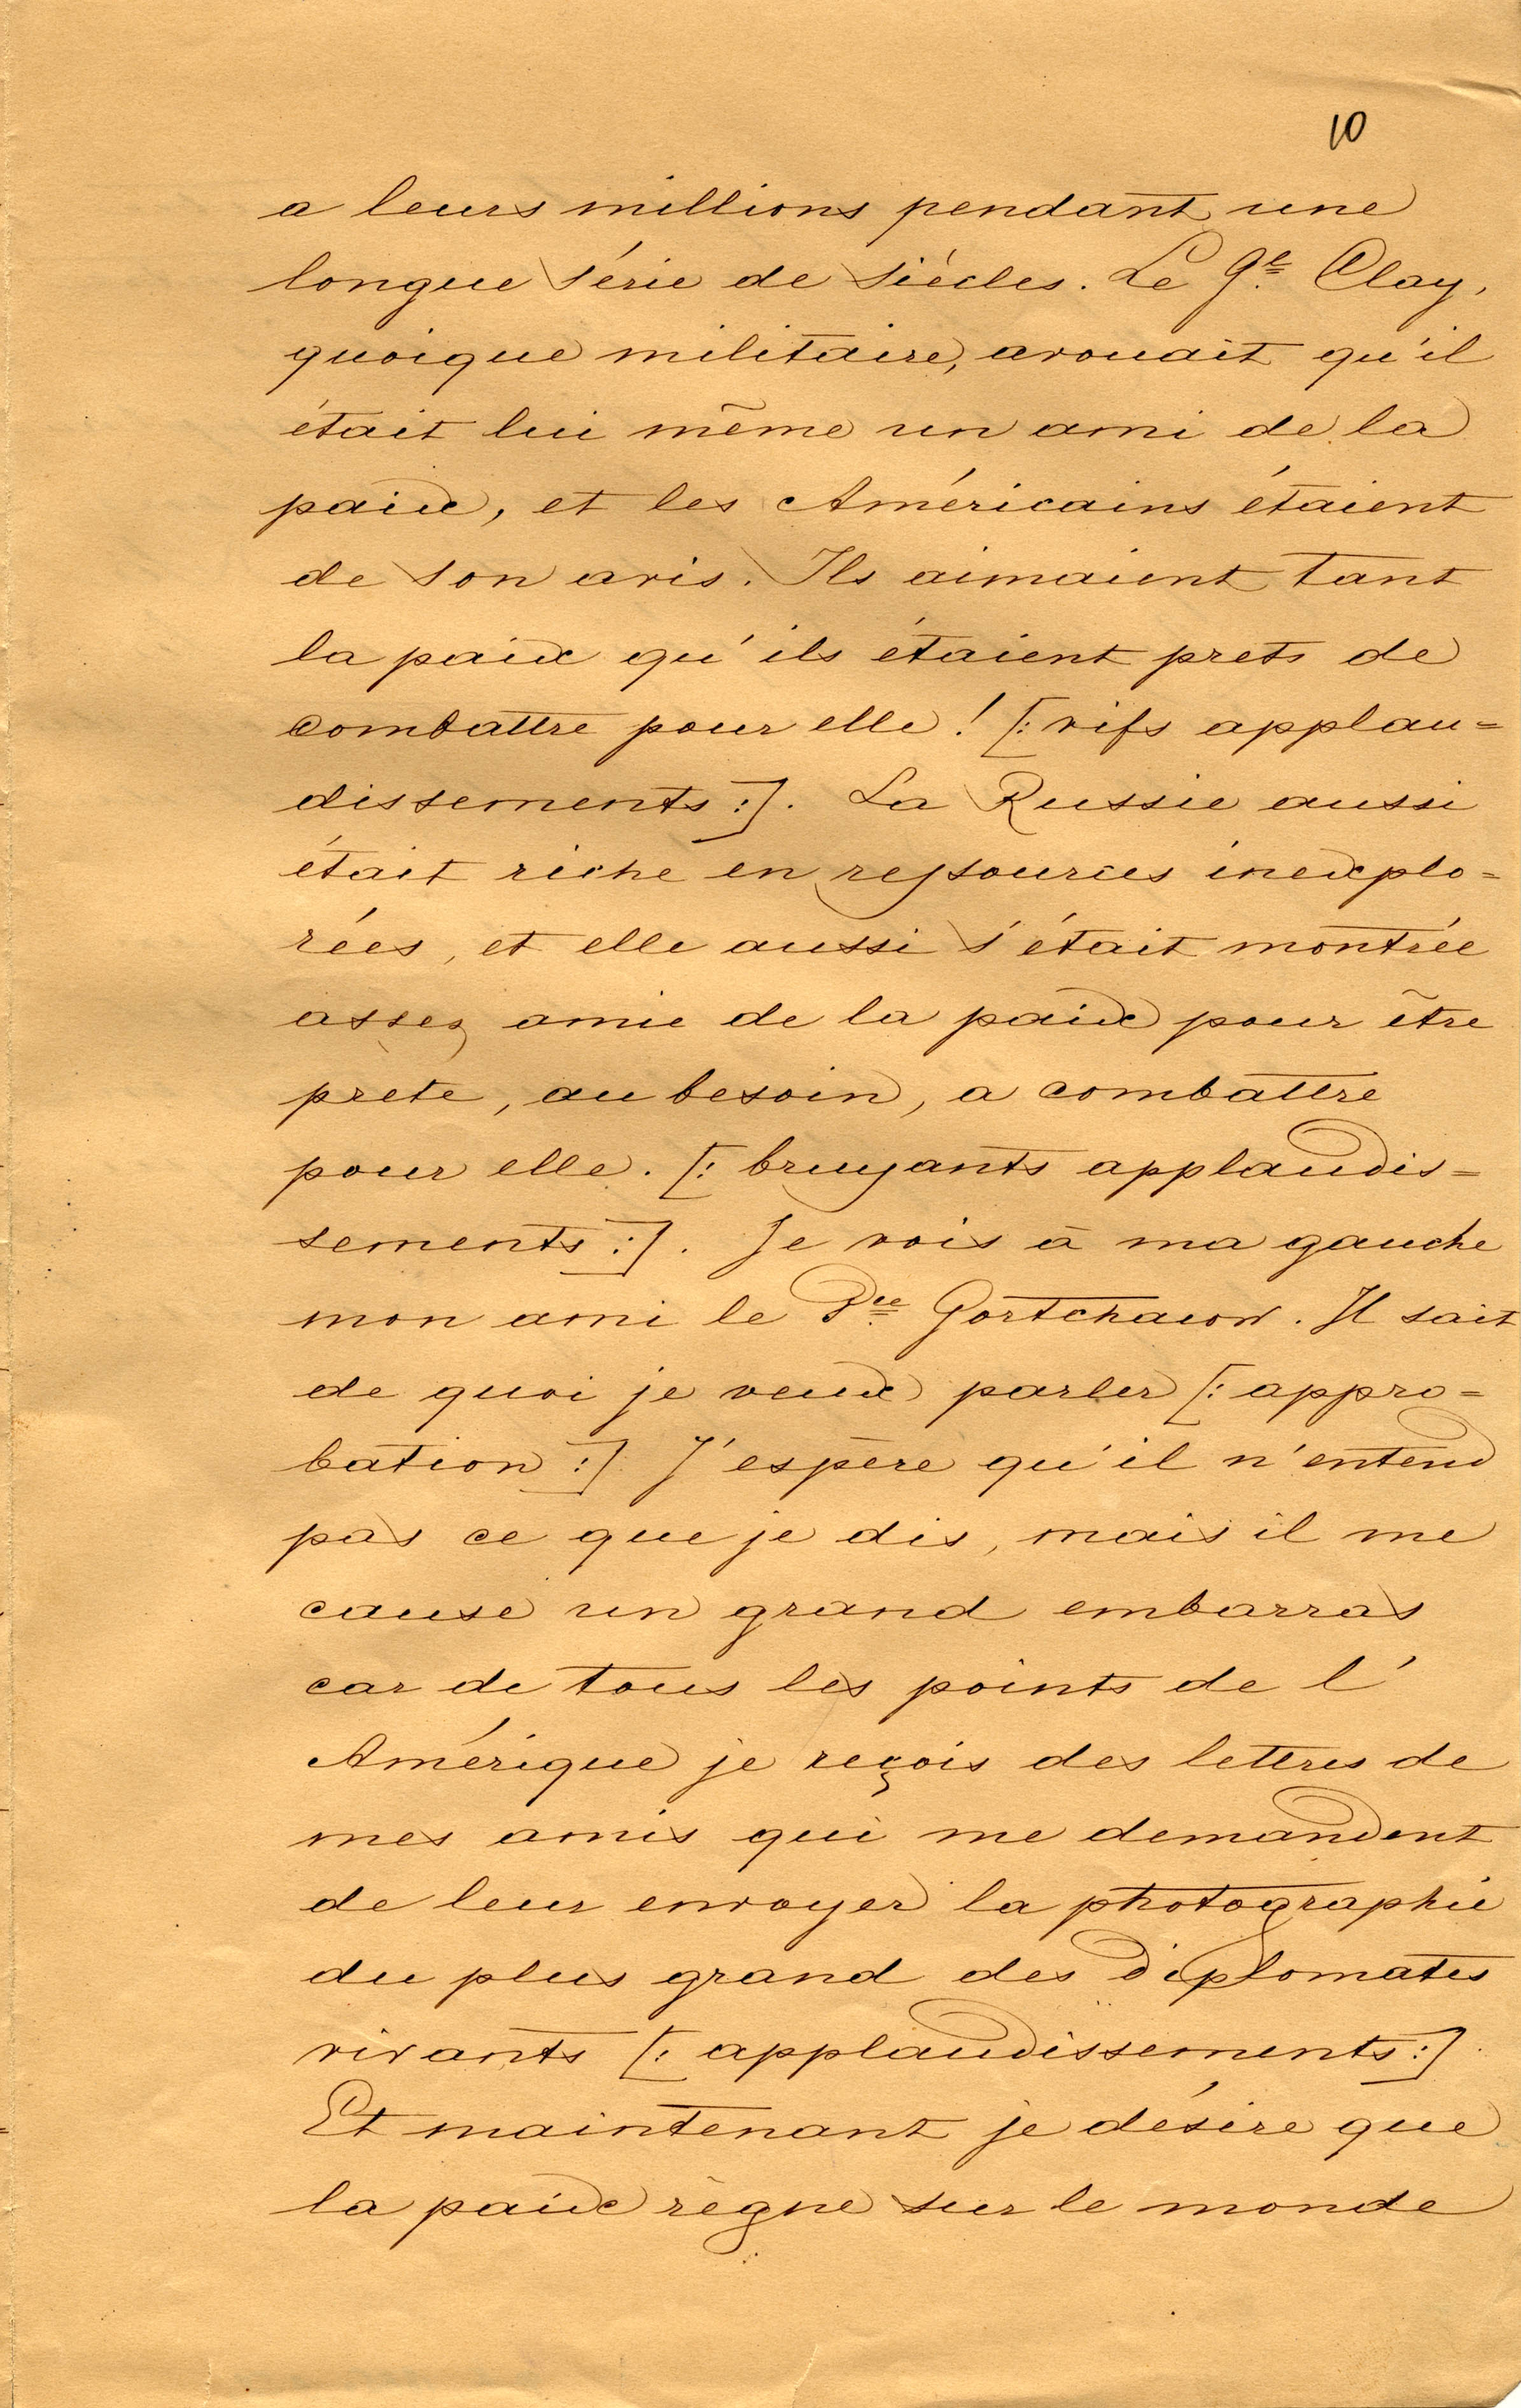 10
a leurs millions pendant une
longue série de siècles. Le Gl. Clay,
quoique militaire, avouait qu'il
était lui même un ami de la
paix, et les Américains étaient
de son avis. Ils aimaient tant
la paix qu'ils étaient prets de
combattre pour elle! [: vifs applau=
dissements :]. La Russie aussi
était riche en ressources inexplo=
rées, et elle aussi s'était montrée
assez amie de la paix pour être
prete, au besoin, a combattre
pour elle. [: bruyants applaudis=
sements :]. Je vois à ma gauche
mon ami le Pce. Gortchacow. Il sait
de quoi je veux parler [: appro=
bation :] J'espère qu'il n'entend
pas ce que je dis, mais il me
cause un grand embarras
car de tous les points de l'
Amérique je reçois des lettres de
mes amis qui me demandent
de leur envoyer la photographie
du plus grand des diplomates
vivants [: applaudissements :].
Et maintenant je désire que
la paix règne sur le monde